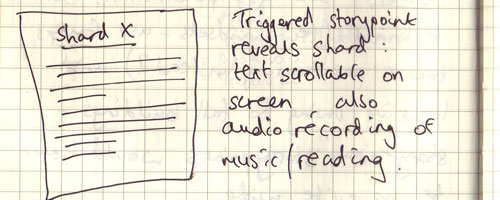 Shard X
Triggered storypoint
reveals shard :
text scrollable on
screen also
audio recording of
music/reading.